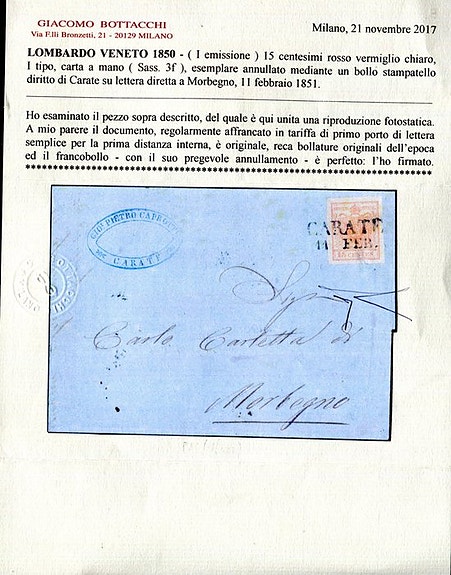 GIACOMO BOTTACCHI
Via F.lli Bronzetti, 21 - 20129 MILANO
Milano, 21 novembre 2017
LOMBARDO VENETO 1850 - ( I emissione ) 15 centesimi rosso vermiglio chiaro,
I tipo, carta a mano ( Sass. 3f ), esemplare annullato mediante un bollo stampatello
diritto di Carate su lettera diretta a Morbegno, 11 febbraio 1851.
Ho esaminato il pezzo sopra descritto, del quale è qui unita una riproduzione fotostatica.
A mio parere il documento, regolarmente affrancato in tariffa di primo porto di lettera
semplice per la prima distanza interna, è originale, reca bollature originali dell'epoca
ed il francobollo - con il suo pregevole annullamento - è perfetto: l'ho firmato.
CARATE
11 FEB.
15 CENTES.
CARATE
Carlo Carletta di
Morbegno